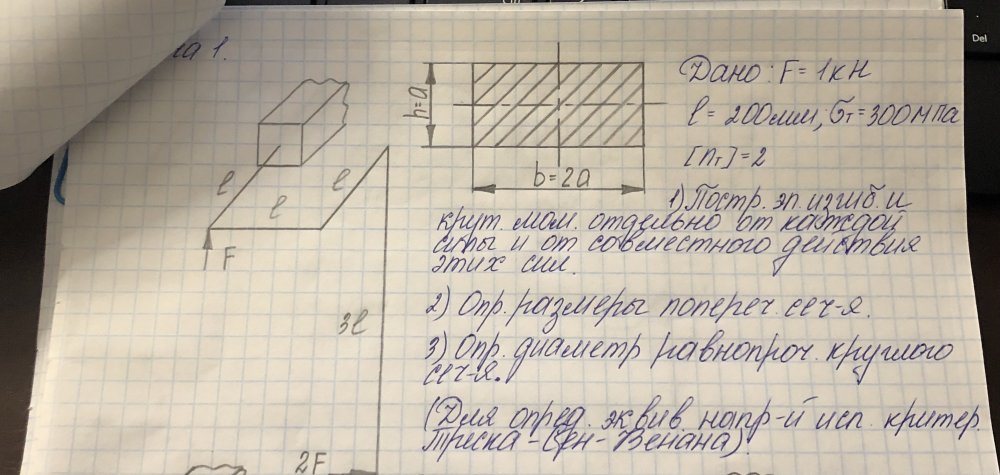 а 1.
Del
Дано: F = 1кН
l = 200мм, σт = 300МПа
[nт] = 2
h=a
b=2a
l
l
l
F
3l
2F
1) Постр. эп. изгиб. и
крут. мом. отдельно от каждой
силы и от совместного действия
этих сил.
2) Опр. размеры попереч. сеч-я.
3) Опр. диаметр равнопроч. круглого
сеч-я.
(Для опред. эквив. напр-й исп. критер.
Треска-Сен-Венана)